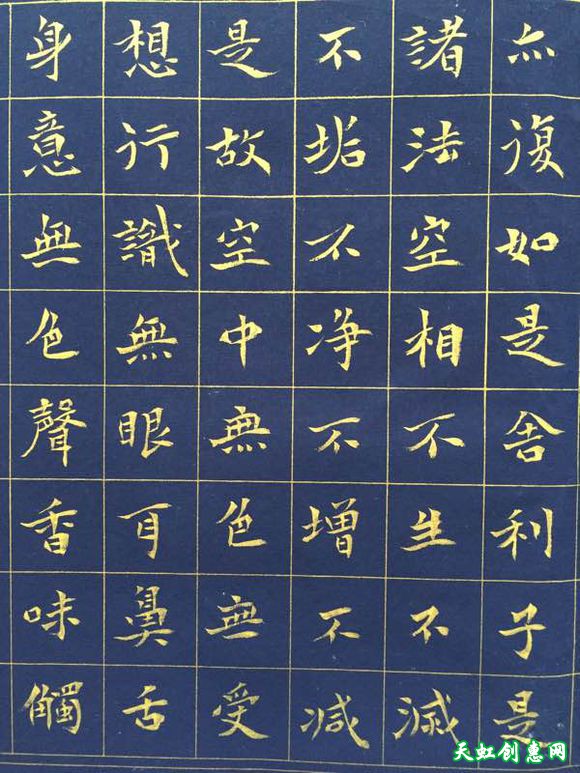 亦復如是舍利子是
諸法空相不生不滅
不垢不净不增不减
是故空中無色無受
想行識無眼耳鼻舌
身意無色聲香味觸
天虹创惠网